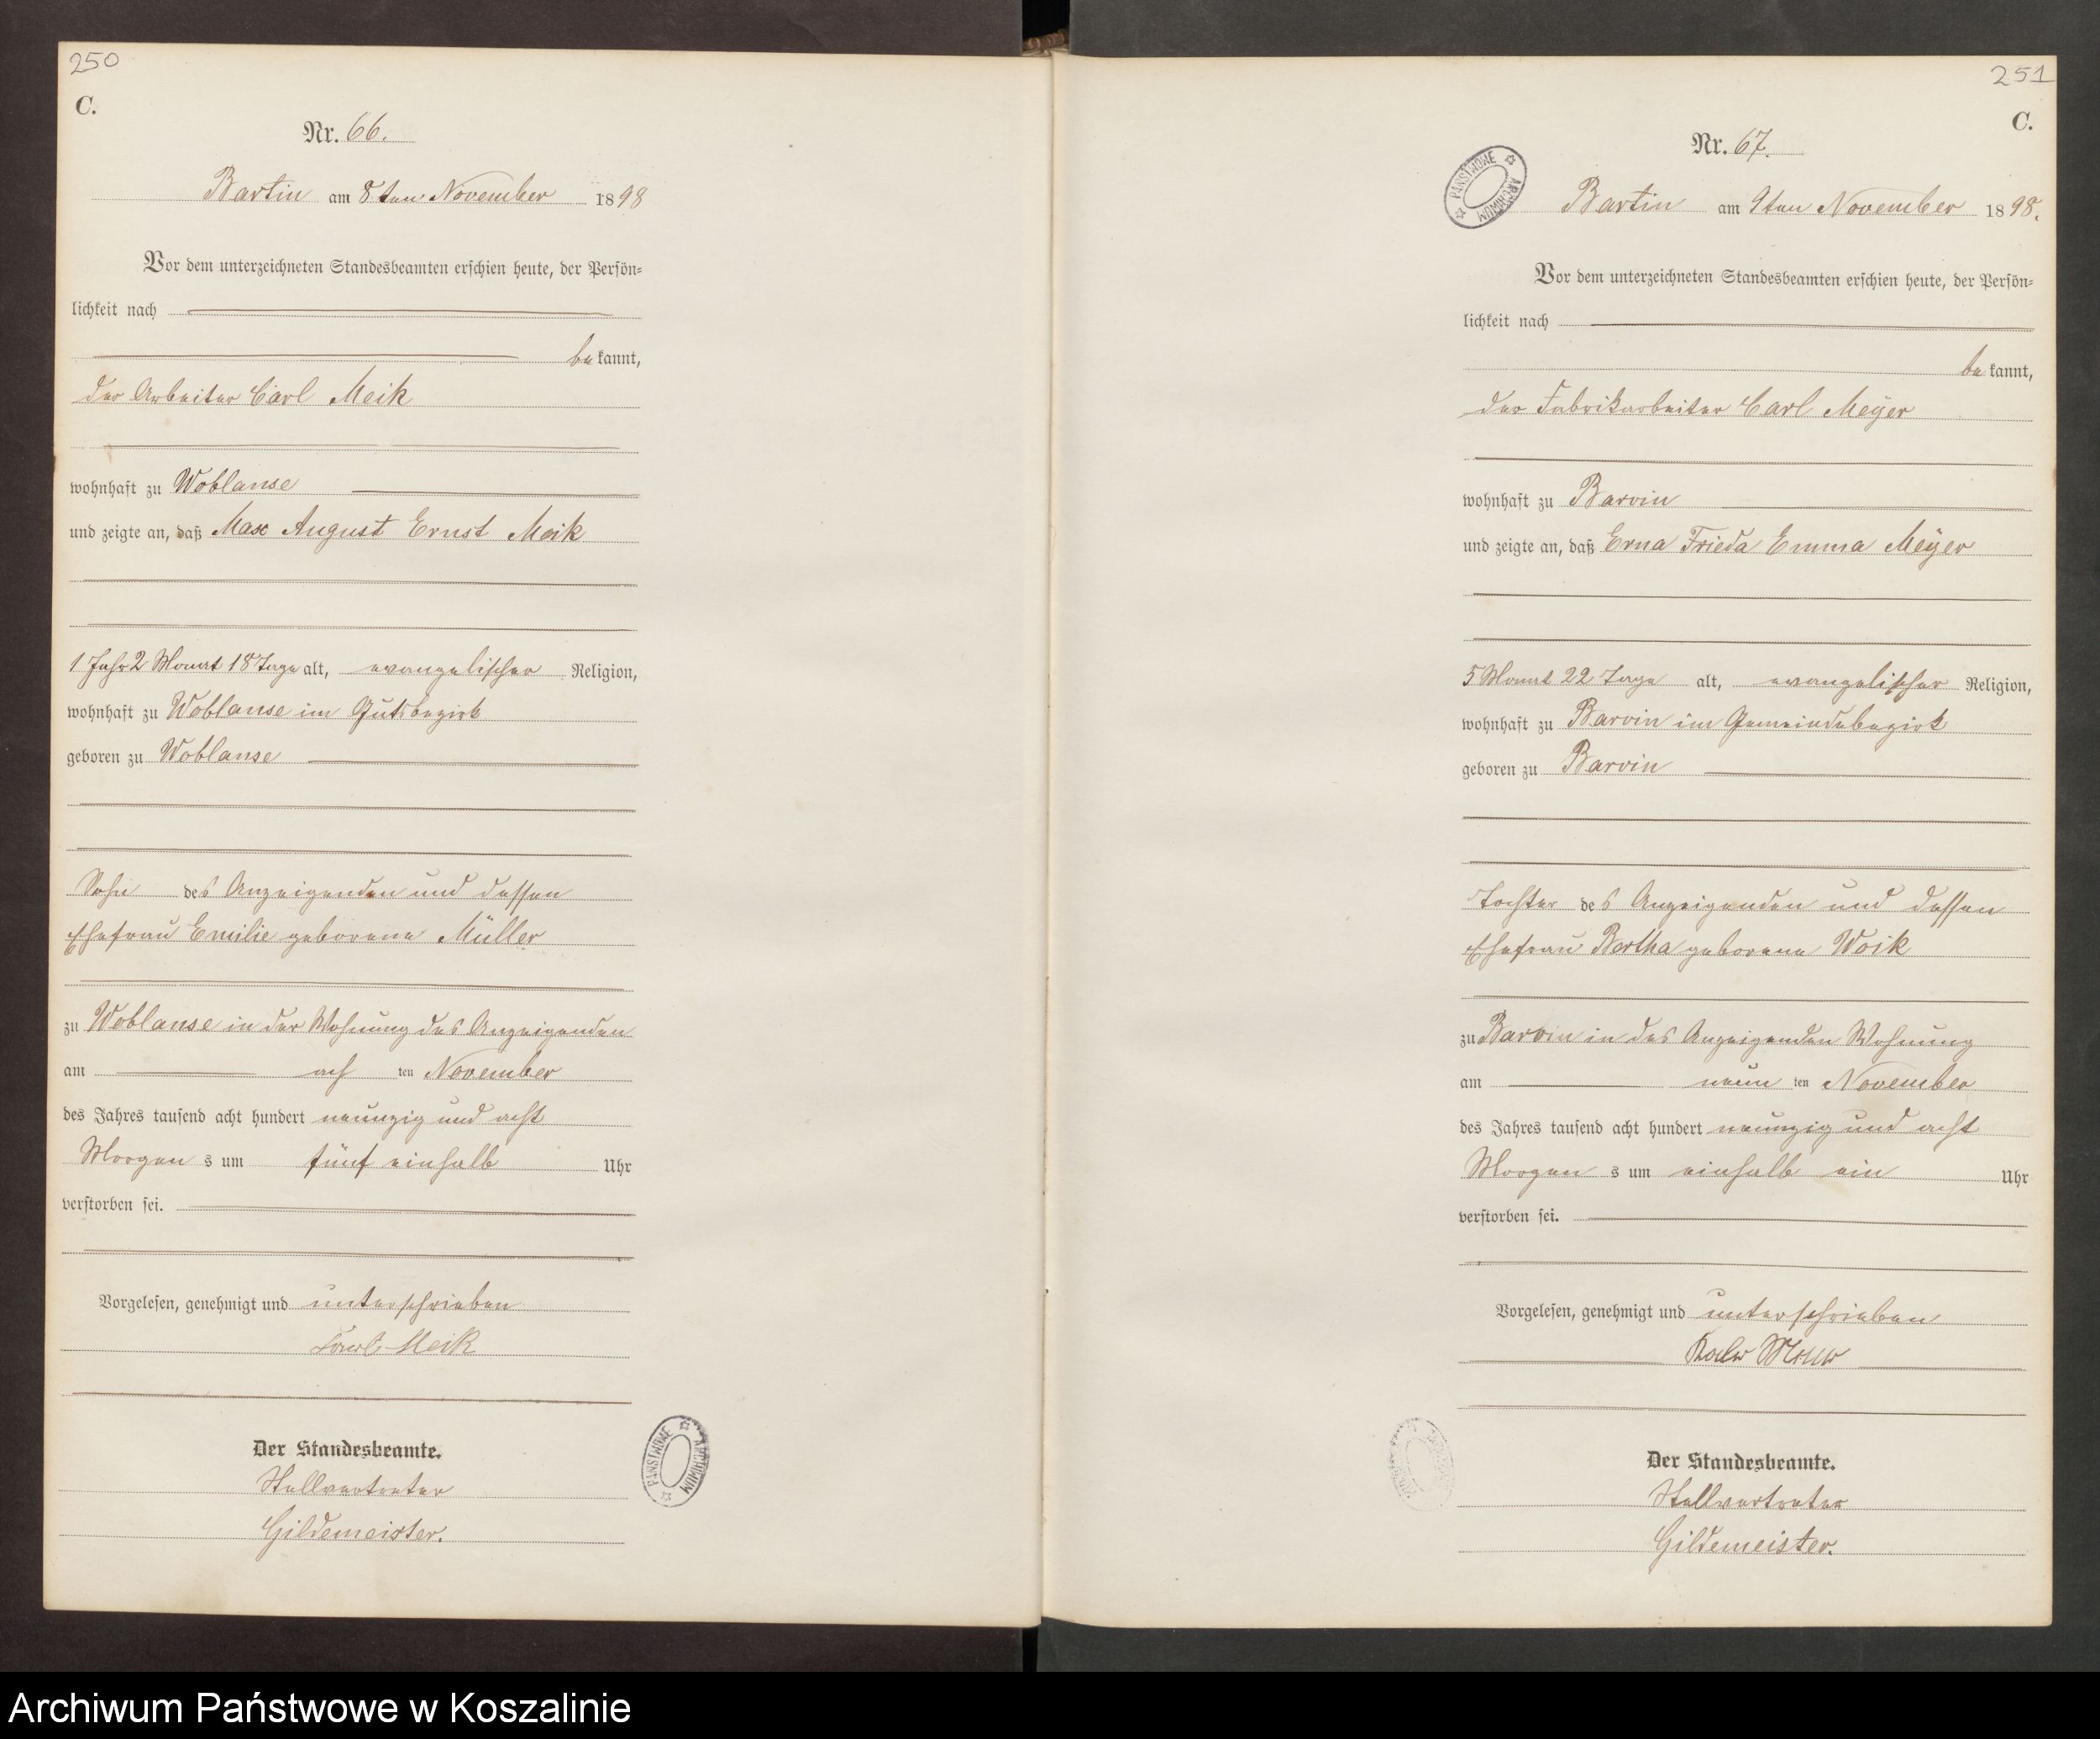 250
C.
Nr. 66.
Bartin am 8ten November 1898
Vor dem unterzeichneten Standesbeamten erschien heute, der Persön-
lichkeit nach
bekannt,
der Arbeiter Carl Meik
wohnhaft zu Woblanse
und zeigte an, daß Max August Ernst Meik
1 Jahr 2 Monat 18 Tage alt, evangelischer Religion,
wohnhaft zu Woblanse im Gutsbezirk
geboren zu Woblanse
Sohn des Anzeigenden und dessen
Ehefrau Emilie geborene Müller
zu Woblanse in der Wohnung des Anzeigenden
am ach ten November
des Jahres tausend acht hundert neunzig und acht
Morgen s um fünf einhalb Uhr
verstorben sei.
Vorgelesen, genehmigt und unterschrieben
Karl Meik
Der Standesbeamte.
Stellvertreter
Gildemeister.
PAŃSTWOWE ARCHIWUM
251
C.
Nr. 67.
PAŃSTWOWE ARCHIWUM
Bartin am 9ten November 1898.
Vor dem unterzeichneten Standesbeamten erschien heute, der Persön-
lichkeit nach
bekannt,
der Fabrikarbeiter Carl Meyer
wohnhaft zu Barvin
und zeigte an, daß Erna Frieda Emma Meyer
5 Monat 22 Tage alt, evangelischer Religion,
wohnhaft zu Barvin im Gemeindebezirk
geboren zu Barvin
Tochter des Anzeigenden und dessen
Ehefrau Bertha geborene Woik
zu Barvin in des Anzeigenden Wohnung
am neun ten November
des Jahres tausend acht hundert neunzig und acht
Morgen s um einhalb ein Uhr
verstorben sei.
Vorgelesen, genehmigt und unterschrieben
Der Standesbeamte.
Stellvertreter
Gildemeister.
Archiwum Państwowe w Koszalinie